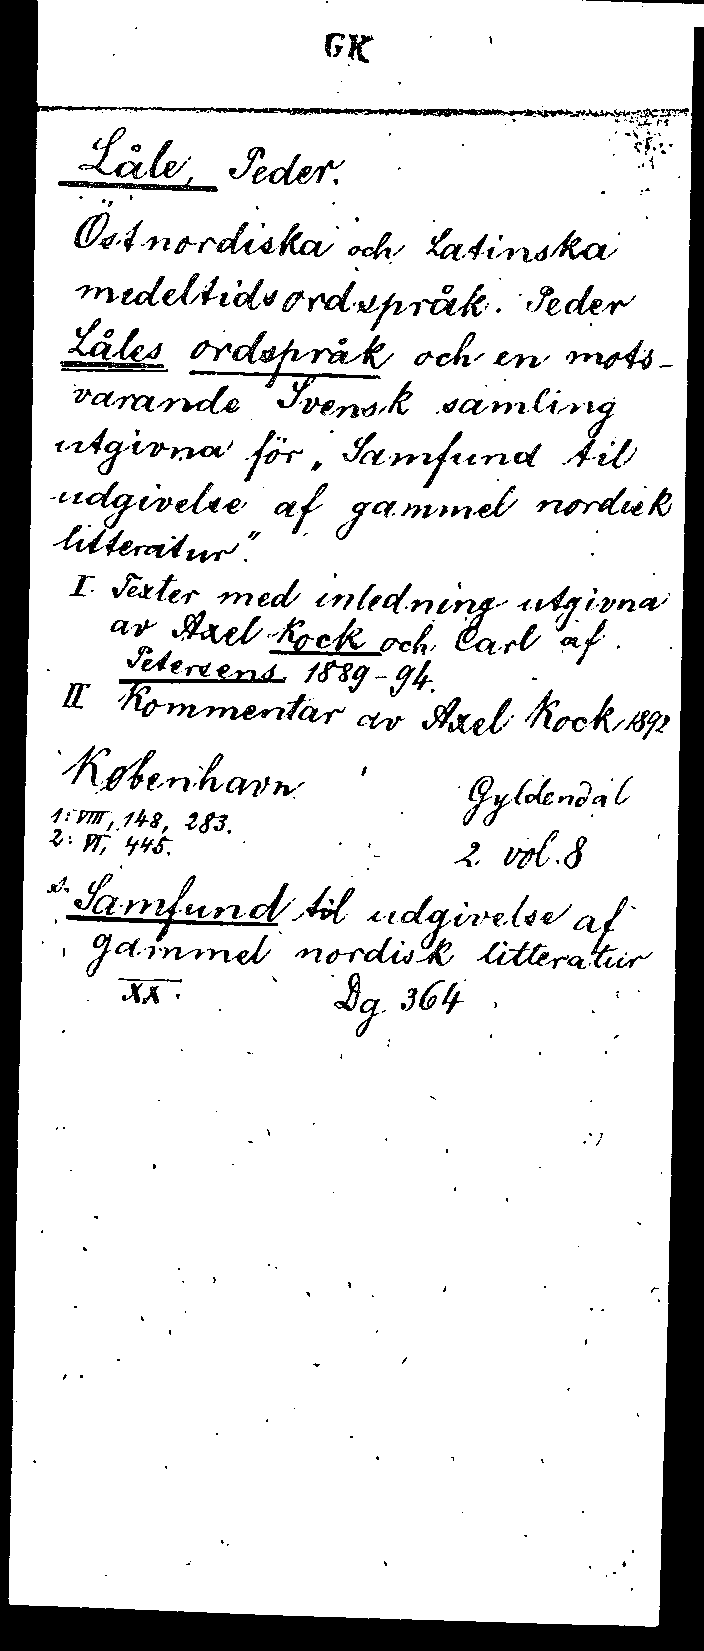 GK
Låle, Peder.
Östnordiska och Latinska
medeltidsordspråk. Peder
Låles ordspråk och en mots-
varande Svensk samling
utgivna för „Samfund til
udgivelse af gammel nordisk
litteratur".
I. Texter med inledning utgivna
av Axel Kock och Carl af
Petersens 1889-94.
II Kommentar av Axel Kock 1892
København Gyldendal
1: VIII, 148, 283.
2: VI, 445. 2 vol. 8
s. Samfund til udgivelse af
gammel nordisk litteratur
XX. Dg. 364